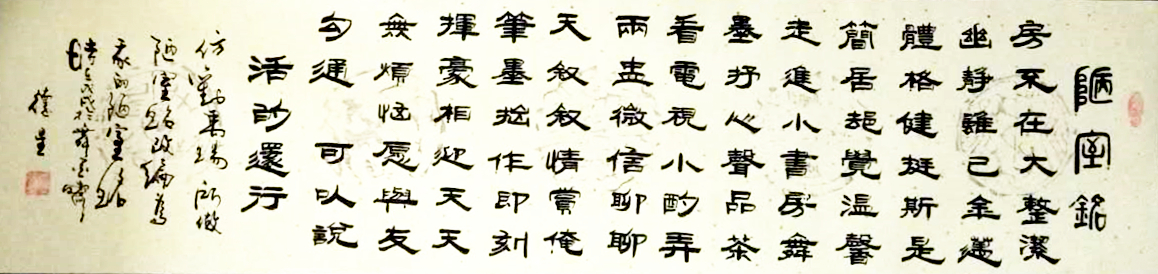 陋室銘
房不在大整潔
幽靜雖己金邁
體格健挺斯是
簡居覺溫馨
走進小書房舞
墨抒心聲品茶
看電視小酌弄
兩盅微信聊聊
天敘敘情賞俺
筆墨拙作即刻
揮豪相迎天天
無煩惱愿與友
勾通 可以說
活的還行
仿劉禹錫所做
陋室銘改編為
我的陋室銘